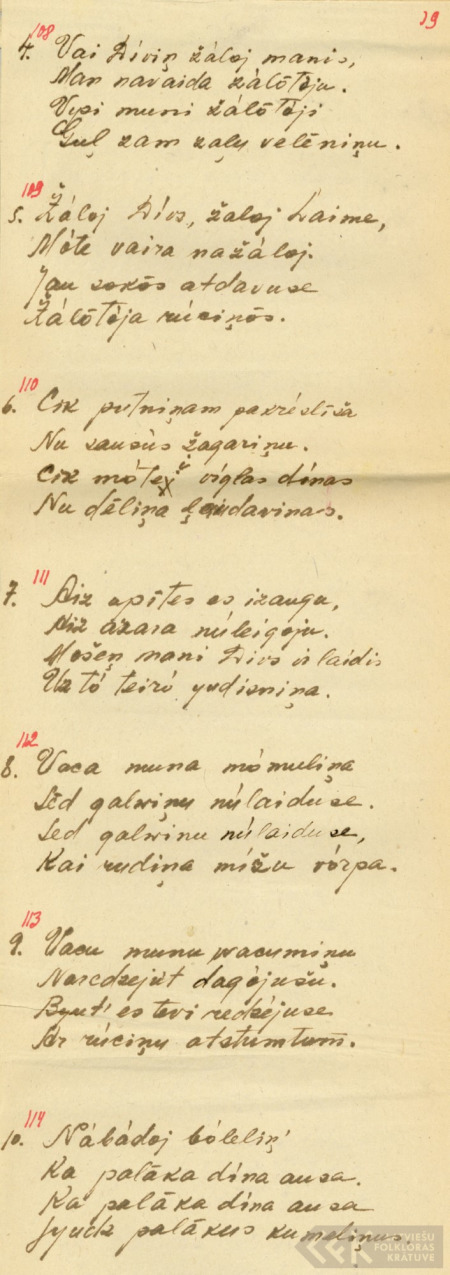 19
108
4. Vai Dīviņ žáloj manis,
Man navaida žálōtōju.
Vysi muni žálōtōji
Guļ zam zaļu velēniņu.
109
5. Žáloj Dívs, žaloj Laime,
Móte vaira nažáloj.
Jau sokōs atdavuse
Žálōtōja rúciņōs.
110
6. Cik putniņam pakréslīša
Nu sausùs žagariņu.
Cik móteį víglas dínas
Nu dēliņa ļaudavinas.
111
7. Aiz upītes es izaugu,
Aiz azara núleigōju.
Mošeņ mani Divs irlaidis
Uz tó teiró yudisniņa.
112
8. Vaca muna mómuliņa
Sēd galwiņu núlaiduse.
Sed galwinu núlaiduse,
Kai rudiņa mížu vórpa.
113
9. Vacu munu wacumiņu
Naredzejùt dagójušù.
Byut' es tevi redzéjuse
Ar rúciņu atstumtum̄.
114
10. Nábádoj bóleliņ'
Ka paláka dína ausa.
Ka paláka dína ausa
Jyudz palákus kumeliņus.
LATVIEŠU
FOLKLORAS
KRĀTUVE